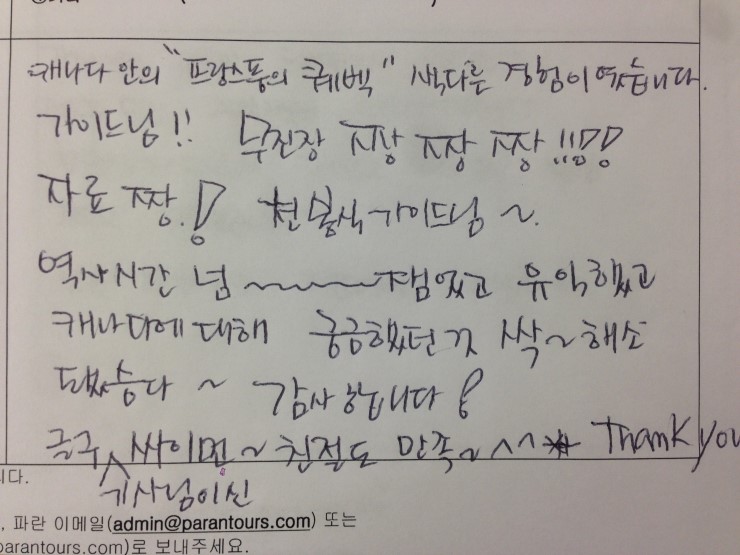 캐나다 안의 "프랑스풍의 퀘벡" 색다른 경험이였습니다.
가이드님!! 무진장 짱 짱 짱 !!!!!
자료 짱.! 천봉식 가이드님 ~.
역사시간 넘~~~~잼있었고 유익했고
캐나다에 대해 궁금했던것 싹~해소
됐슴다 ~ 감사합니다!
싸이먼~ 친절도 만족~^^* Thank you
기사님이신
니다.
, 파란 이메일(admin@parantours.com) 또는
parantours.com)로 보내주세요.